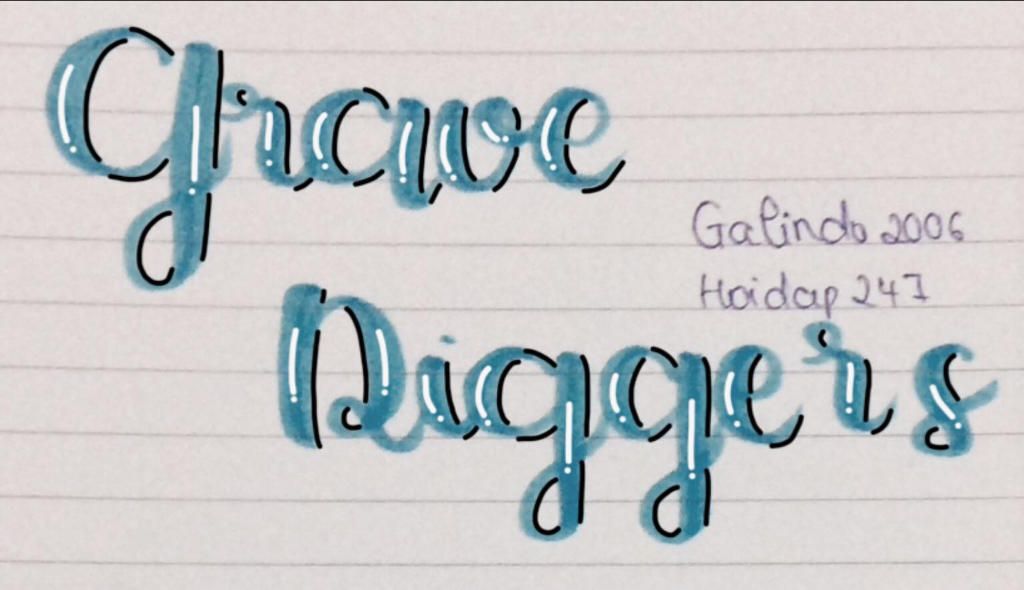 Grave
Galindo 2006
Hoidap 247
Diggers